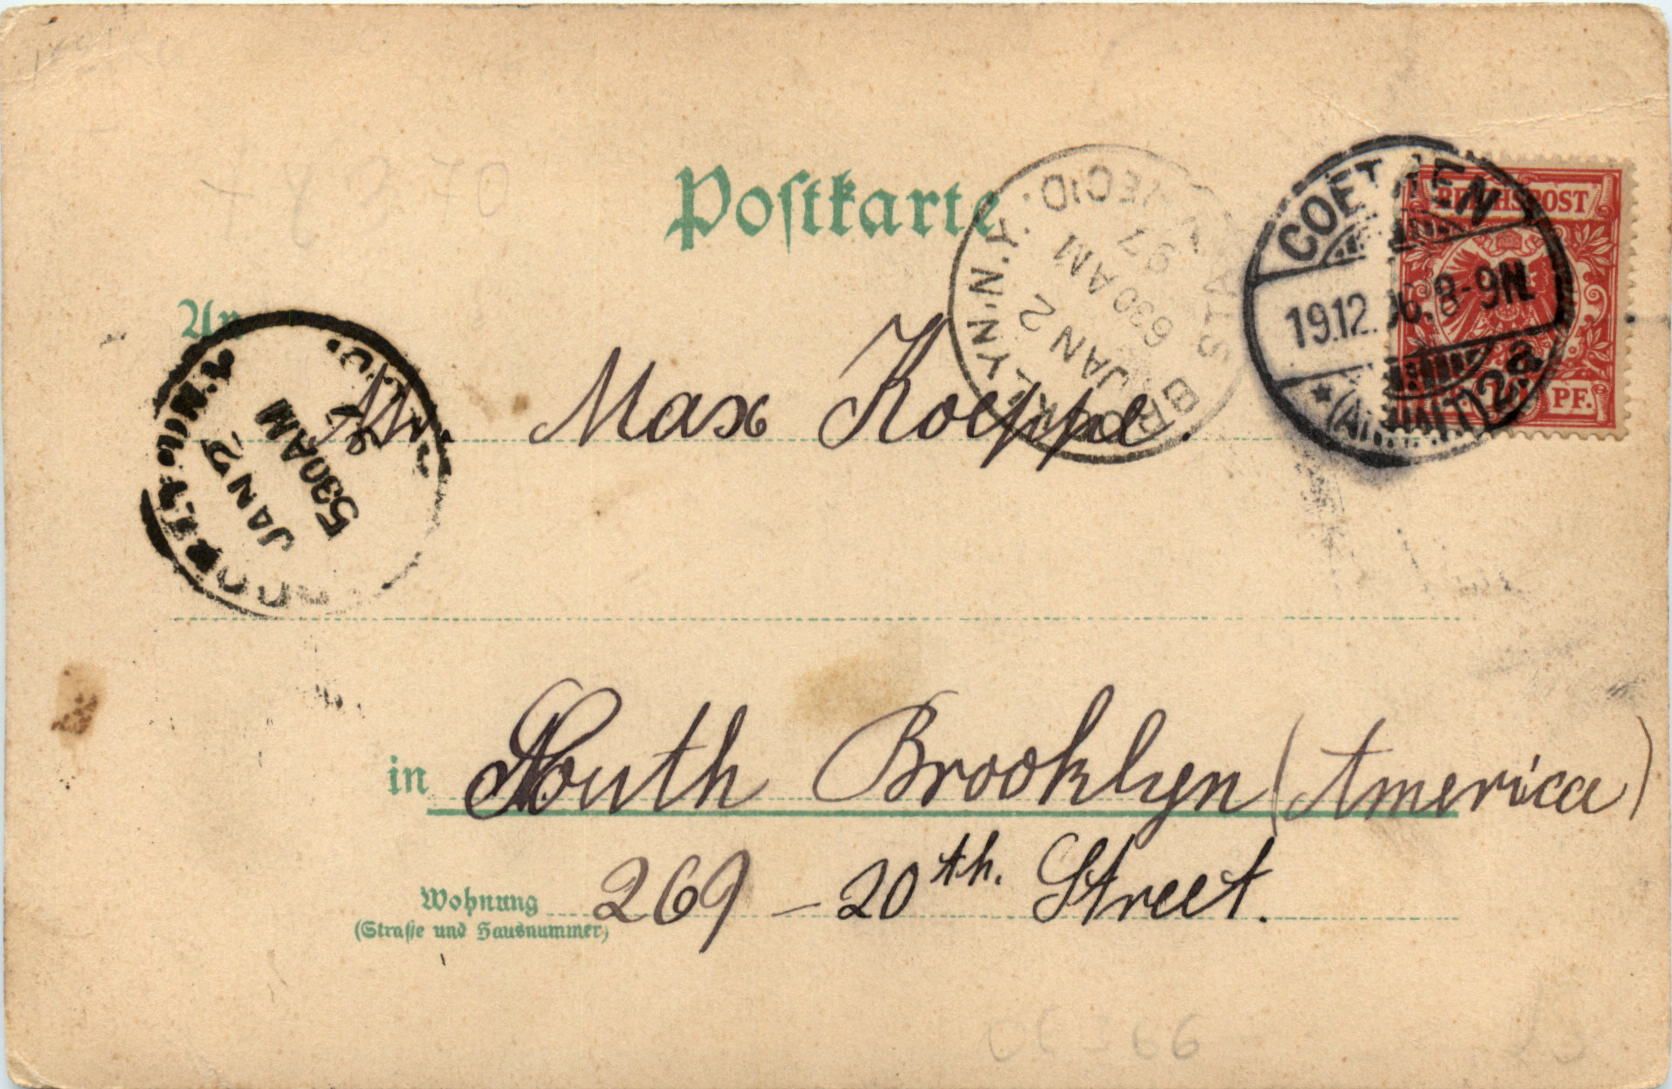 Postkarte
REICHSPOST
PF.
COETHEN
19.12. 96. 8-9N.
(ANHALT) 2a
BROOKLYN. N.Y. STA. V REC'D.
JAN 2
630 AM
97
BROOKLYN, N.Y.
JAN 2
530 AM
97
An
Mr Max Koeppe.
in South Brooklyn (America)
Wohnung 269 – 20th. Street.
(Straße und Hausnummer)